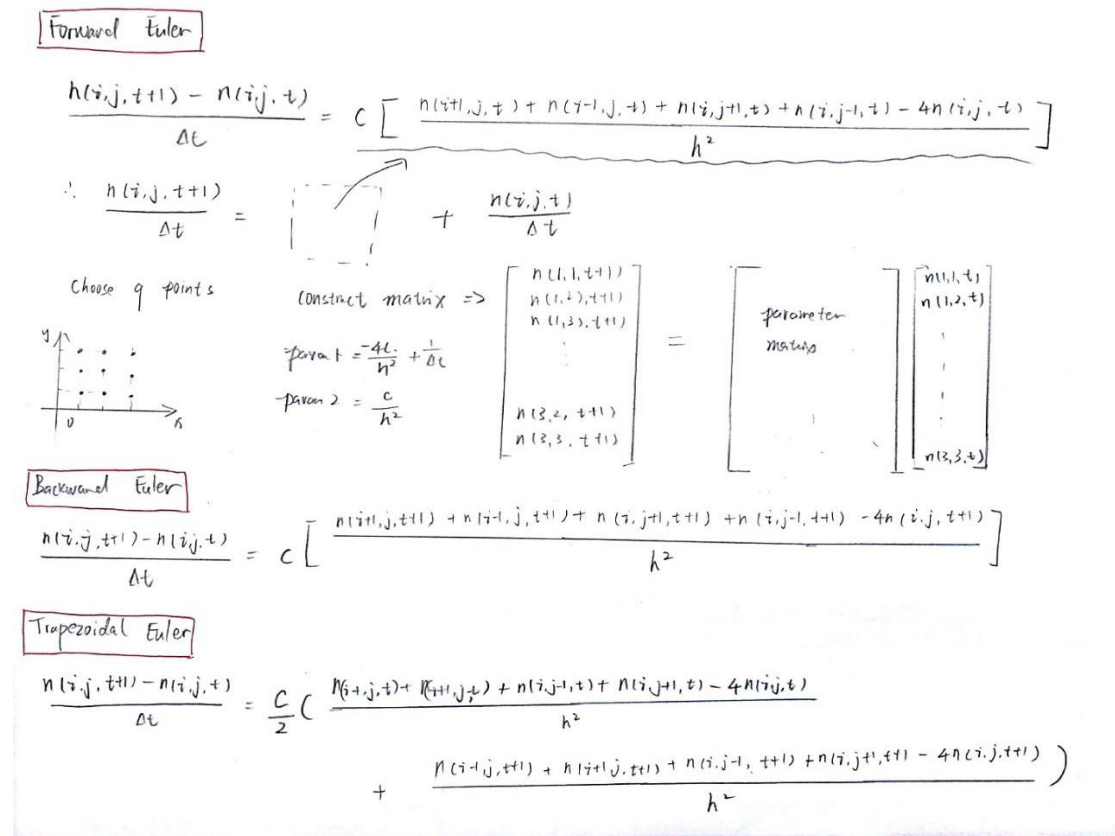 Forward Euler
n(i,j,t+1) - n(i,j,t) / Δt = c [ n(i+1,j,t) + n(i-1,j,t) + n(i,j+1,t) + n(i,j-1,t) - 4n(i,j,t) / h² ]
∴ n(i,j,t+1) / Δt = + n(i,j,t) / Δt
Choose 9 points
construct matrix => [ n(1,1,t+1) n(1,2),t+1) n(1,3),t+1) ⋮ n(3,2,t+1) n(3,3,t+1) ] = [ parameter matrix ] [ n(1,1,t) n(1,2,t) ⋮ n(3,3,t) ]
param 1 = -4c / h² + 1 / Δt
param 2 = c / h²
y
0 x
Backward Euler
n(i,j,t+1) - n(i,j,t) / Δt = c [ n(i+1,j,t+1) + n(i-1,j,t+1) + n(i,j+1,t+1) + n(i,j-1,t+1) - 4n(i,j,t+1) / h² ]
Trapezoidal Euler
n(i,j,t+1) - n(i,j,t) / Δt = c / 2 ( n(i-1,j,t) + n(i+1,j,t) + n(i,j-1,t) + n(i,j+1,t) - 4n(i,j,t) / h²
+ n(i-1,j,t+1) + n(i+1,j,t+1) + n(i,j-1,t+1) + n(i,j+1,t+1) - 4n(i,j,t+1) / h² )